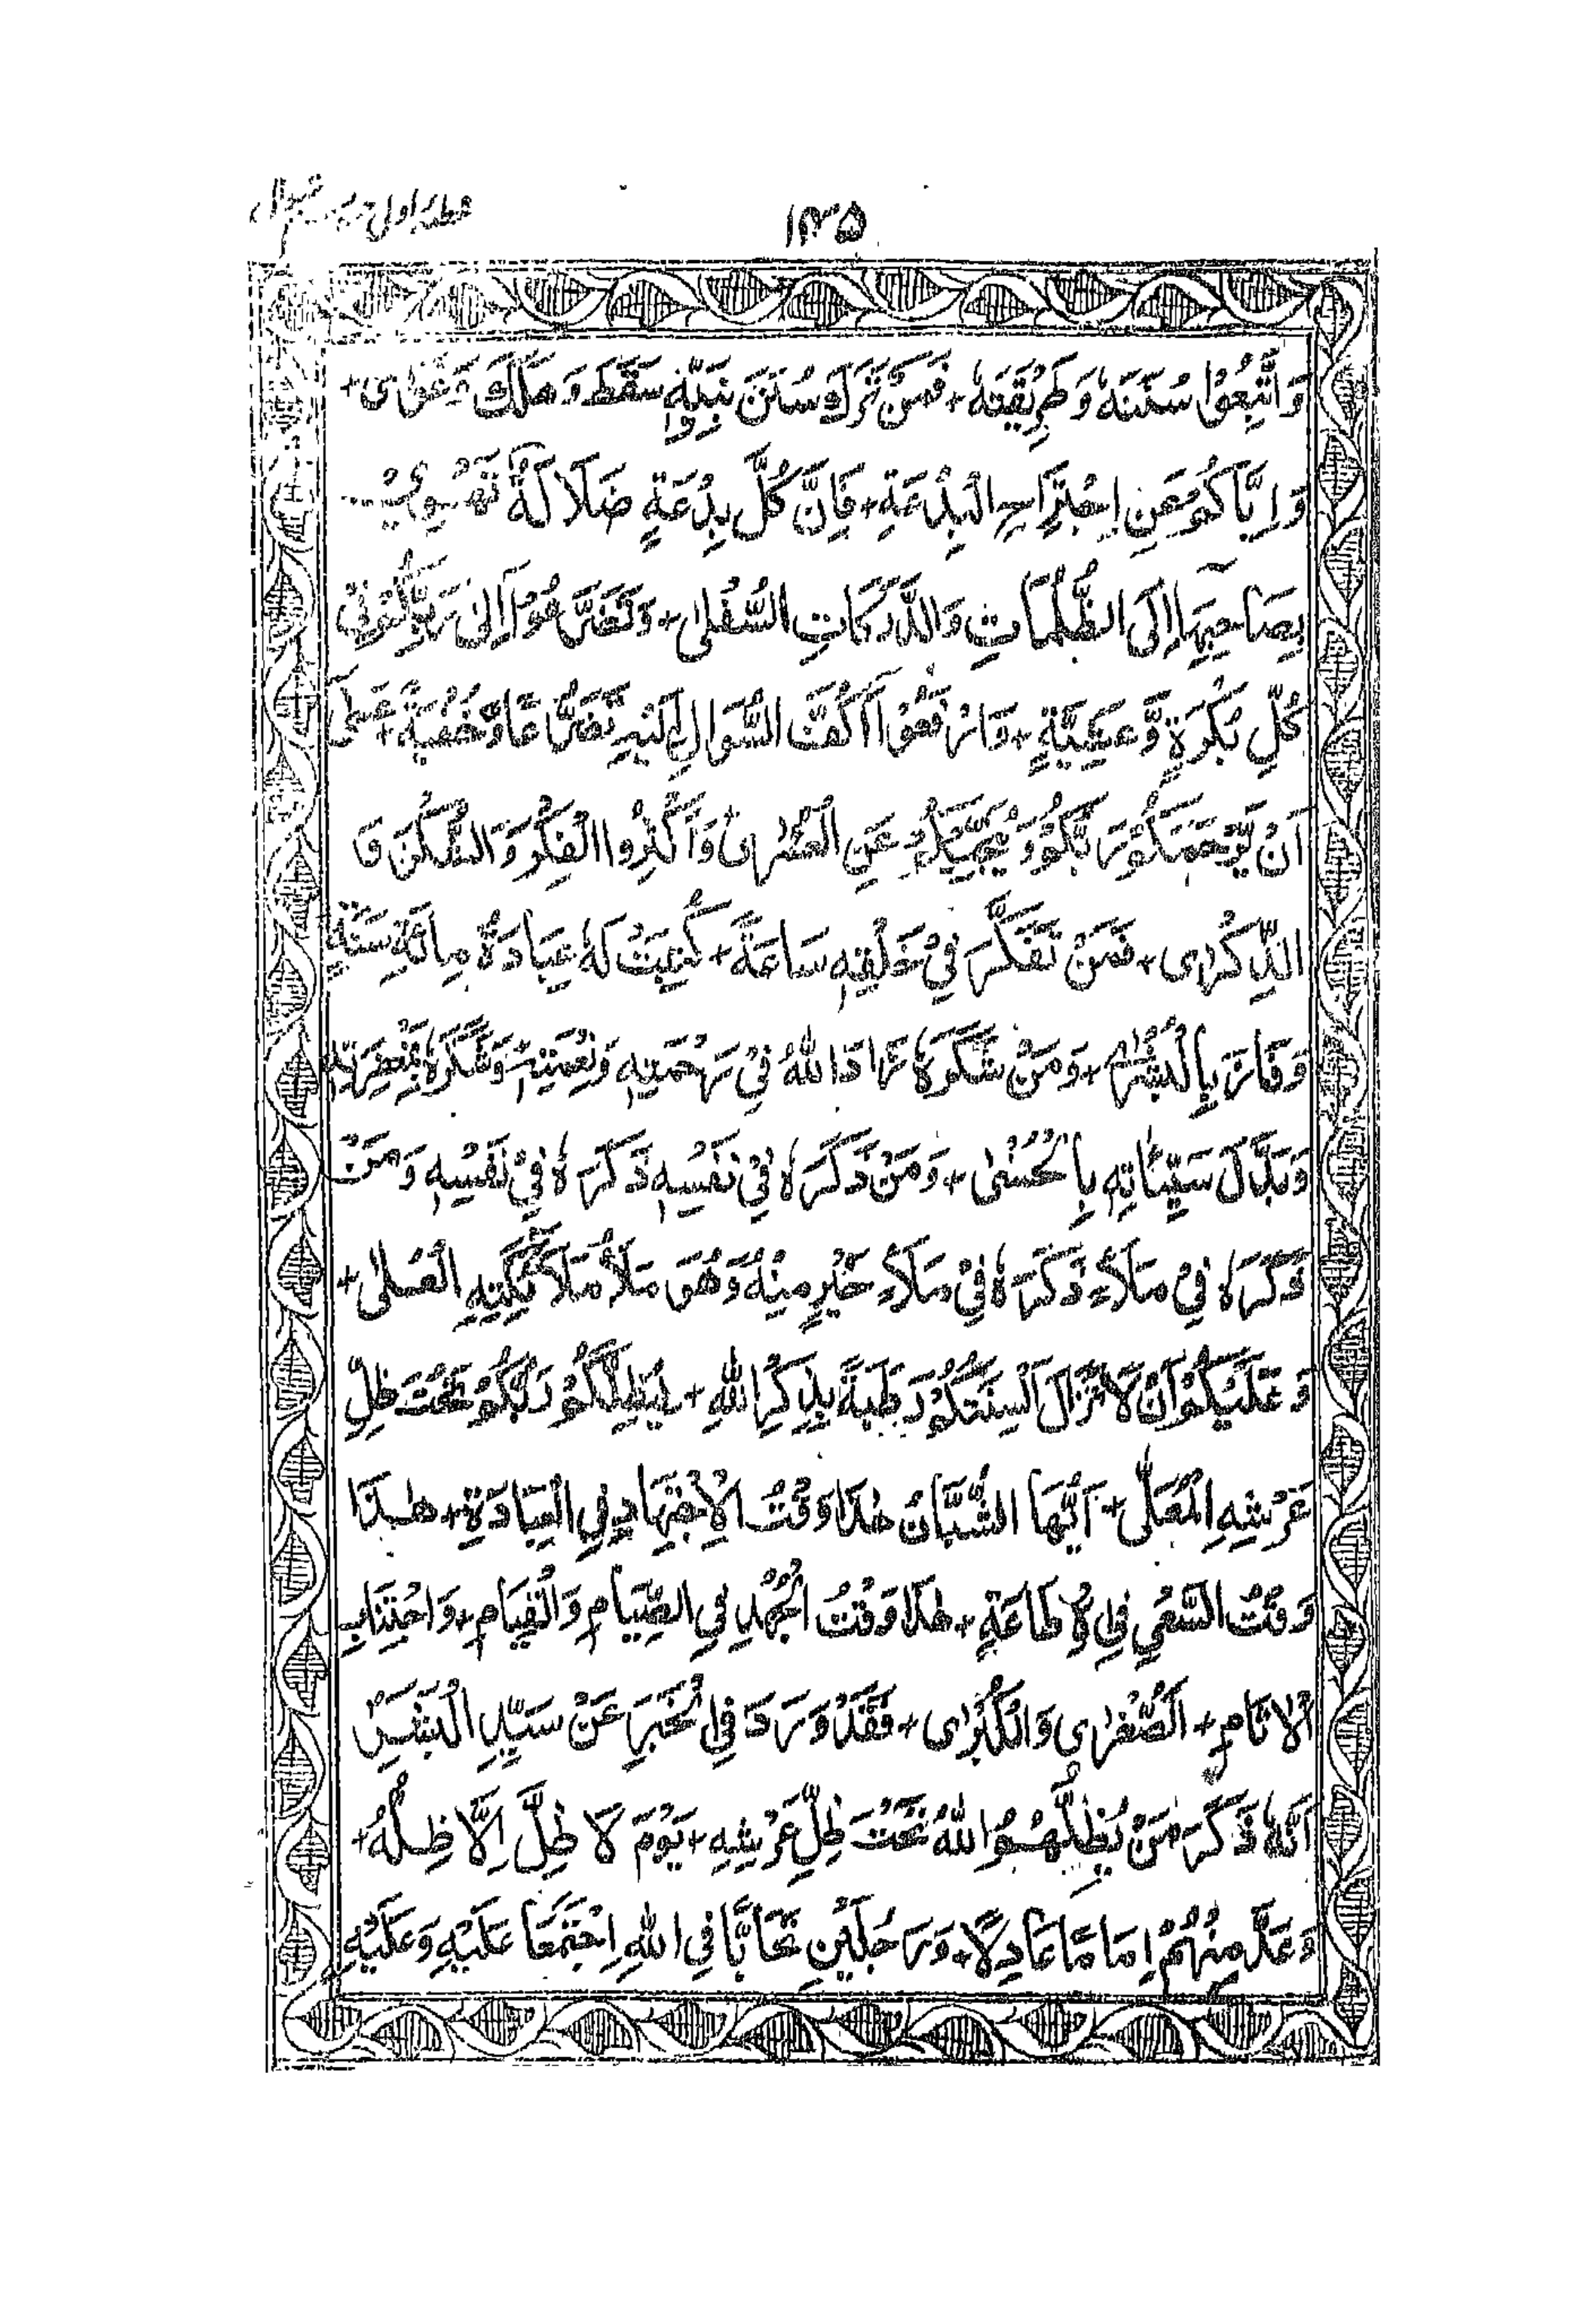 ۱۳۵
خطبۂ اولی شوال
وَاتَّبِعُوْا سُنَّتَهٗ وَطَرِيْقَتَهٗ + فَمَنْ تَرَكَ سُنَنَ نَبِيِّهٖ سَقَطَ وَهَلَكَ وَغَوٰى +
وَاِيَّاكُمْ عَنِ اجْتِرَاحِ الْبِدْعَةِ + فَاِنَّ كُلَّ بِدْعَةٍ ضَلَالَةٌ تَهْوِيْ
بِصَاحِبِهَا اِلَى الظُّلُمَاتِ وَالدَّرَكَاتِ السُّفْلٰى + وَتَضَرَّعُوْا اِلٰى رَبِّكُمْ فِيْ
كُلِّ بُكْرَةٍ وَّعَشِيَّةٍ + وَارْفَعُوْا اَكُفَّ السُّوَالِ اِلَيْهِ تَضَرُّعًا وَّخُفْيَةً + عَسٰى
اَنْ يَّرْحَمَكُمْ رَبُّكُمْ وَ عَنِ وَاَكْثِرُوا الْفِكْرَ وَالشُّكْرَ وَ
الذِّكْرٰى + فَمَنْ تَفَكَّرَ فِيْ خَلْقِهٖ سَاعَةً + كُتِبَتْ لَهٗ عِبَادَةُ مِائَةِ سَنَةٍ
وَفَازَ بِالْبُشْرٰى + وَمَنْ شَكَرَهٗ زَادَ اللهُ فِيْ رَحْمَتِهٖ وَنِعْمَتِهٖ وَشَكَرَهٗ
وَبَدَّلَ سَيِّئَاتِهٖ بِالْحُسْنٰى + وَمَنْ ذَكَرَهٗ فِيْ نَفْسِهٖ ذَكَرَهٗ فِيْ نَفْسِهٖ وَمَنْ
ذَكَرَهٗ فِيْ مَلَاءٍ ذَكَرَهٗ فِيْ مَلَاءٍ خَيْرٍ مِنْهُ وَهُوَ مَلَأُ مَلَائِكَتِهِ الْعُلٰى +
وَعَلَيْكُمْ اَنْ لَا تَزَالَ اَلْسِنَتُكُمْ رَطْبَةً بِذِكْرِ اللهِ + لِيُظِلَّكُمْ رَبُّكُمْ تَحْتَ ظِلِّ
عَرْشِهِ الْمُعَلّٰى + اَيُّهَا الشُّبَّانُ هٰذَا وَقْتُ الْاِجْتِهَادِ فِي الْعِبَادَةِ + هٰذَا
وَقْتُ السَّعْيِ فِي الْاِطَاعَةِ + هٰذَا وَقْتُ الْجُهْدِ فِي الصِّيَامِ وَالْقِيَامِ + وَاجْتِنَابِ
الْاٰثَامِ + الصُّغْرٰى وَالْكُبْرٰى + فَقَدْ وَرَدَ فِي الْخَبَرِ عَنْ سَيِّدِ الْبَشَرِ
اَنَّهٗ ذَكَرَ مَنْ يُظِلُّهُمُ اللهُ تَحْتَ ظِلِّ عَرْشِهٖ + يَوْمَ لَا ظِلَّ اِلَّا ظِلُّهُ +
وَعَدَّ مِنْهُمْ اِمَامًا عَادِلًا + وَرَجُلَيْنِ تَحَابَّا فِي اللهِ اجْتَمَعَا عَلَيْهِ وَعَلَيْهِ